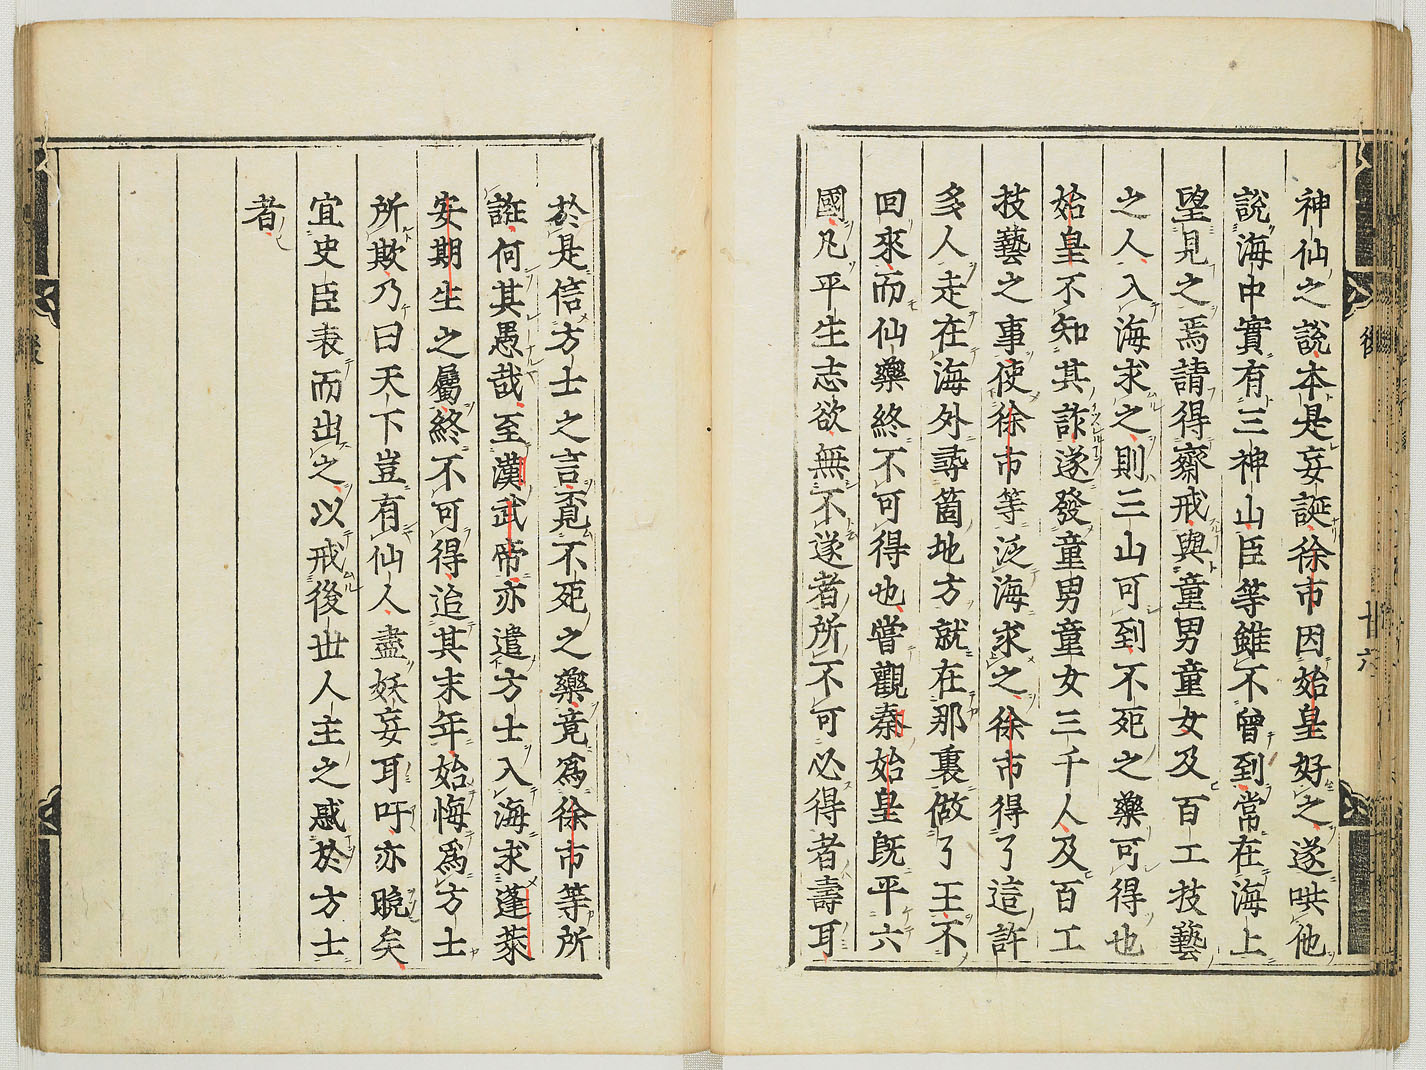 神仙之說本是妄誕徐市因始皇好之遂哄他
說海中實有三神山臣等雖不曾到常在海上
望見之焉請得齋戒與童男童女及百工技藝
之人入海求之則三山可到不死之藥可得也
始皇不知其詐遂發童男童女三千人及百工
技藝之事使徐市等泛海求之徐市得了這許
多人走在海外尋箇地方就在那裏做了王不
回來而仙藥終不可得也嘗觀秦始皇既平六
國凡平生志欲無不遂者所不可必得者壽耳
於是信方士之言覔不死之藥竟為徐市等所
誑何其愚哉至漢武帝亦遣方士入海求蓬萊
安期生之屬終不可得迨其末年始悔為方士
所欺乃曰天下豈有仙人盡妖妄耳吁亦晚矣
宜史臣表而出之以戒後世人主之惑於方士
者
廿六